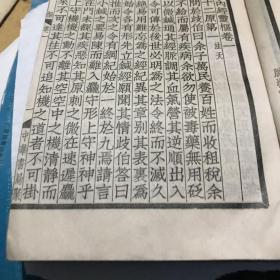 內經靈樞卷一
十二原第一 法天
問於歧伯曰余子萬民養百姓而收租稅余
不給而屬有疾病余欲勿使被毒藥無用砭
以微鍼通其經脈調其血氣營其逆順出入
令可傳於後世必明為之法令終而不滅久
絕易用難忘為之經紀異其章別其表裏為
始令各有形先立鍼經願聞其情歧伯答曰
推而次之令有綱紀始於一終於九焉請言
小鍼之要易陳而難入麤守形上守神神乎
在門未覩其疾惡知其原刺之微在速遲麤
上守機機之動不離其空空中之機清靜而
來不可逢其往不可追知機之道者不可掛
中華書局聚